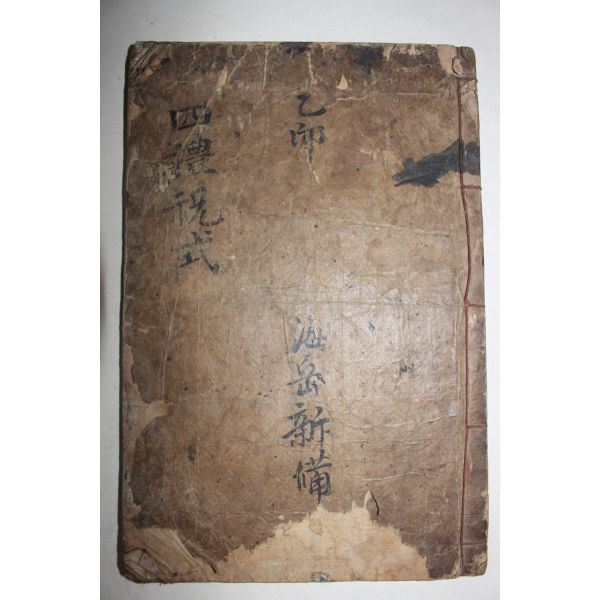 乙卯
海岳新備
四禮祝式